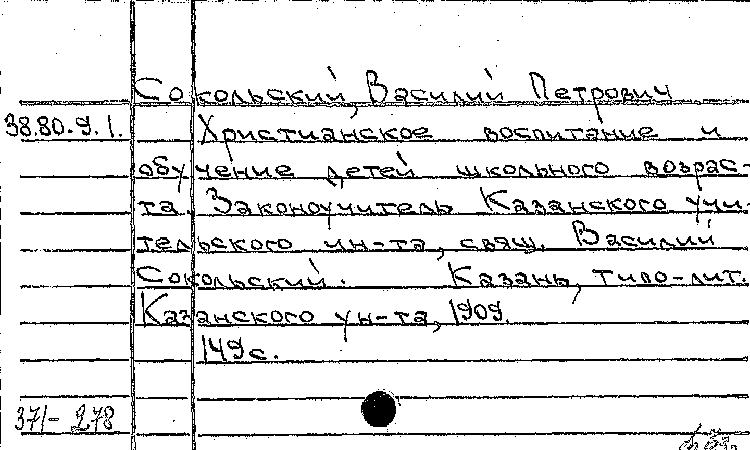 Сокольский, Василий Петрович
38.80.9.1. Християнское воспитание и
обучение детей школьного возрас-
та. Законоучитель Казанского учи-
тельского ин-та, свящ. Василий
Сокольский. Казань, типо-лит.
Казанского ун-та, 1909.
149с.
371-278